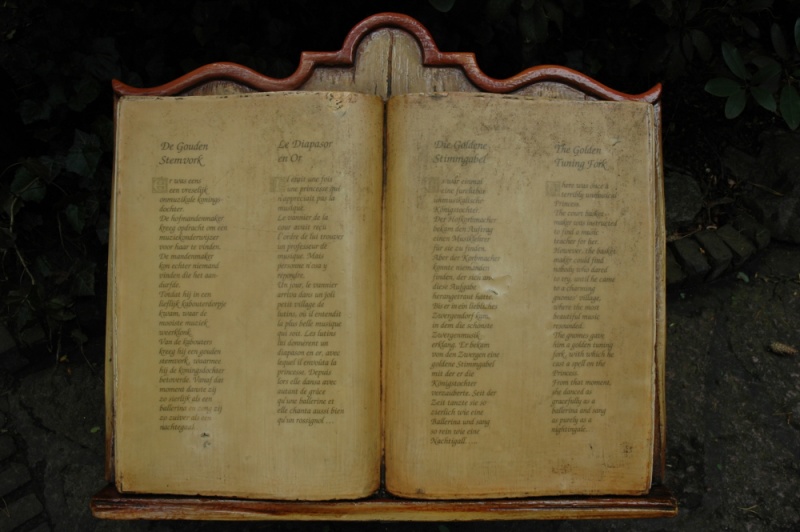 De Gouden
Stemvork
Er was eens
een vreselijk
onmuzikale konings-
dochter.
De hofmandenmaker
kreeg opdracht om een
muziekonderwijzer
voor haar te vinden.
De mandenmaker
kon echter niemand
vinden die het aan-
durfde.
Totdat hij in een
lieflijk kabouterdorpje
kwam, waar de
mooiste muziek
weerklonk.
Van de kabouters
kreeg hij een gouden
stemvork, waarmee
hij de koningsdochter
betoverde. Vanaf dat
moment danste zij
zo sierlijk als een
ballerina en zong zij
zo zuiver als een
nachtegaal
Le Diapason
en Or
Il était une fois
une princesse qui
n'appréciait pas la
musique.
Le vannier de la
cour avait reçu
l'ordre de lui trouver
un professeur de
musique. Mais
personne n'osa y
répondre.
Un jour, le vannier
arriva dans un joli
petit village de
lutins, où il entendit
la plus belle musique
qui soit. Les lutins
lui donnèrent un
diapason en or, avec
lequel il envoûta la
princesse. Depuis
lors elle dansa avec
autant de grâce
qu'une ballerine et
elle chanta aussi bien
qu'un rossignol ...
Die Goldene
Stimmgabel
Es war einmal
eine furchtbar
unmusikalische
Königstochter.
Der Hofkorbmacher
bekam den Auftrag
einen Musiklehrer
für sie zu finden.
Aber der Korbmacher
konnte niemanden
finden, der sich an
diese Aufgabe
herangetraut hätte.
Bis er in ein liebliches
Zwergendorf kam,
in dem die schönste
Zwergenmusik
erklang. Er bekam
von den Zwergen eine
goldene Stimmgabel
mit der er die
Königstochter
verzauberte. Seit der
Zeit tanzte sie so
zierlich wie eine
Ballerina und sang
so rein wie eine
Nachtigall ...
The Golden
Tuning Fork
There was once a
terribly unmusical
Princess.
The court basket-
maker was instructed
to find a music
teacher for her.
However, the basket-
maker could find
nobody who dared
to try, until he came
to a charming
gnomes' village,
where the most
beautiful music
resounded.
The gnomes gave
him a golden tuning
fork, with which he
cast a spell on the
Princess.
From that moment,
she danced as
gracefully as a
ballerina and sang
as purely as a
nightingale.